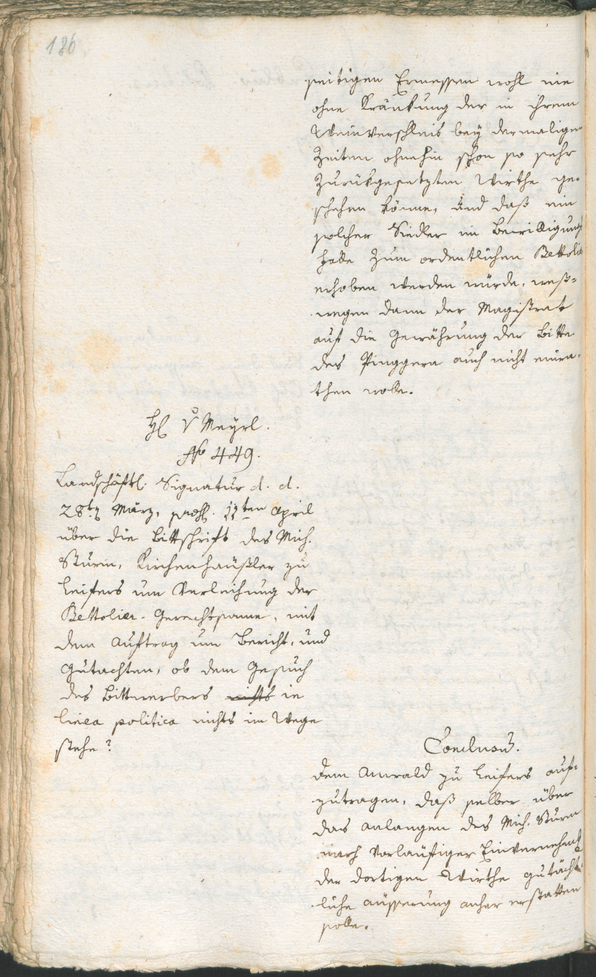 186.
seitigen Ermessen wohl nie
ohne Kränkung der in ihrem
Weinverschleis bey dermaligen
Zeiten ohnehin schon so sehr
zurükgesetzten Wirthe ge-
schehen könne, und daß ein
solcher Siedler im Bewilligung
falle zum ordentlichen Bettolier
erhoben werden würde, weß-
wegen dann der Magistrat
auf die Gewährung der Bitte
des Pinggera auch nicht einra-
then wolle.
H v Mayrl.
No 449.
Landschäftl. Signatur d. d.
28ten März, praes. 11ten April
über die Bittschrift des Mich.
Sturm, Kirchenhäußler zu
Leifers um Verleihung der
Bettolier-Gerechtsame, mit
dem Auftrag um Bericht, und
Gutachten, ob dem Gesuch
des Bittwerbers nichts in
linea politica nichts im Wege
stehe?
Conclusum.
dem Anwald zu Leifers auf-
zutragen, daß selber über
das Anlangen des Mich. Sturm
nach vorläufiger Einvernehmung
der dortigen Wirthe gutächt-
liche äusserung anher erstatten
solle.